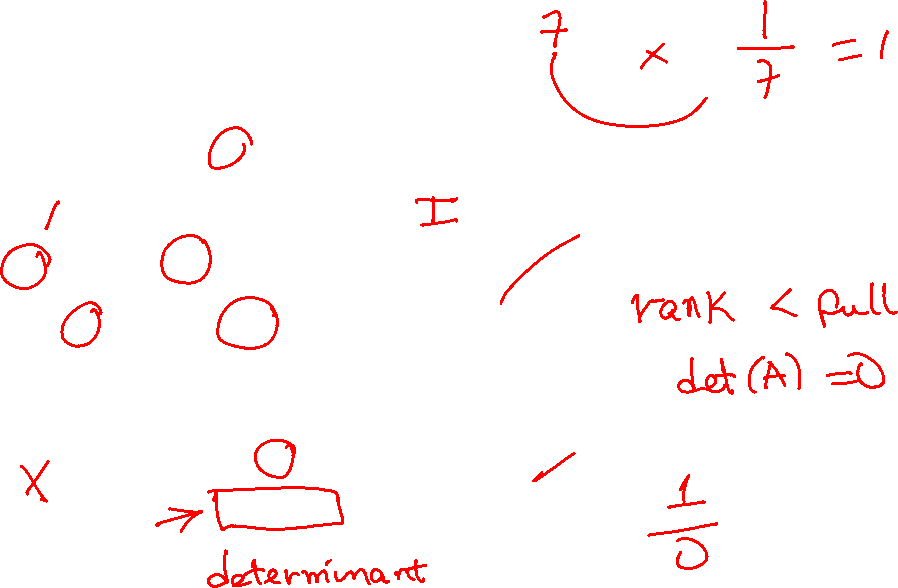 7 × 1/7 = 1
I
rank < full
det(A) = 0
X
determinant
1/0